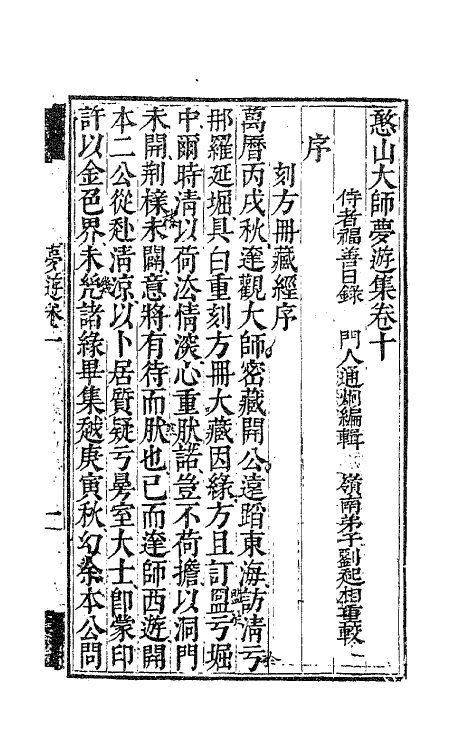 憨山大師夢遊集卷十
侍者福善日錄 門人通炯編輯 嶺南弟子劉起相重較
序
刻方冊藏經序
萬曆丙戌秋達觀大師密藏開公遠蹈東海訪清亏
那羅延堀具白重刻方冊大藏因緣方且訂盟亏堀
中爾時清以荷法情深心重肰諾豈不荷擔以洞門
未開荆榛未闢意將有待而肰也已而達師西遊開
本二公從赴清涼以卜居質疑亏曼室大士卽蒙印
許以金色界未幾諸緣畢集越庚寅秋幻余本公問
夢遊卷一